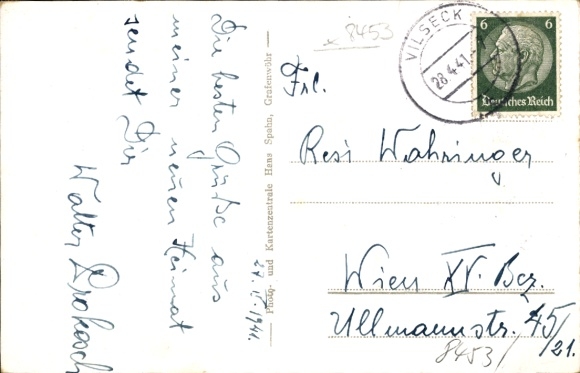 Die besten Grüße aus
meiner neuen Heimat
sendet Dir
Walter
27. IV. 1941.
Photo- und Kartenzentrale Hans Spahn, Grafenwöhr
8453
VILSECK
28.4.41
6 6
Deutsches Reich
Frl.
Resi Wahringer
Wien XV. Bez.
Ullmannstr. 45/
21.
8453/